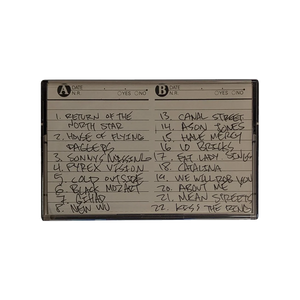 A DATE
N.R. YES NO
1. RETURN OF THE
NORTH STAR
2. HOUSE OF FLYING
DAGGERS
3. SONNYS MISSING
4. PYREX VISION
5. COLD OUTSIDE
6. BLACK MOZART
7. GIHAD
8. NEW WU
B DATE
N.R. YES NO
13. CANAL STREET
14. ASON JONES
15. HAVE MERCY
16. 10 BRICKS
17. FAT LADY SINGS
18. CATALINA
19. WE WILL ROB YOU
20. ABOUT ME
21. MEAN STREETS
22. KISS THE RING